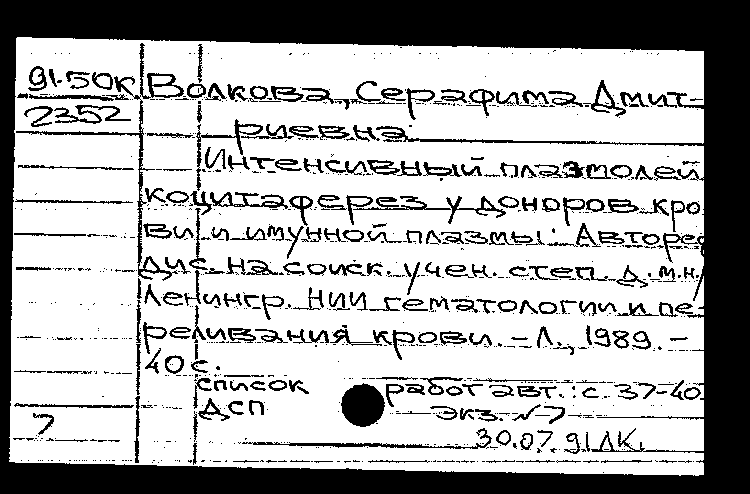 91-50к Волкова, Серафима Дмит-
2352 риевна.
Интенсивный плазмолей
коцитаферез у доноров кро
ви и имунной плазмы: Авторе
дис. на соиск. учен. степ. д.м.н/
Ленингр. НИИ гематологии и пе-
реливания крови. – Л., 1989. –
40 с.
список работ авт.: с. 37-40.
ДСП экз. №7
7 30.07.91 ЛК.